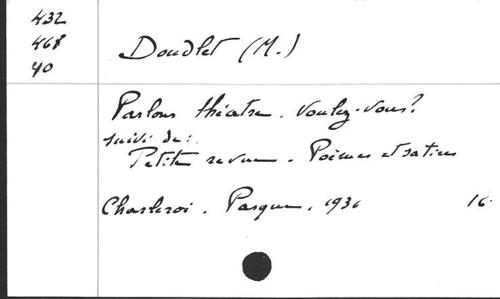 432
468
40
Doudlet (M.)
Parlons théatre. Voulez-vous?
suivi de:
Petite revue. Poèmes et satires
Charleroi. Pasque. 1936 16.